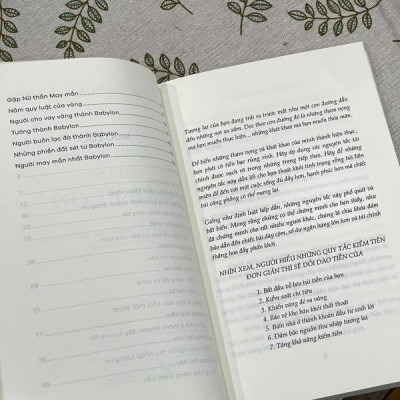 Gặp Nữ thần May mắn
Năm quy luật của vàng
Người cho vay vàng thành Babylon
Tường thành Babylon
Người buôn lạc đà thành Babylon
Những phiến đất sét từ Babylon
Người may mắn nhất Babylon
Tương lai của bạn đang trải ra trước mắt như một con đường dẫn
đến những nơi xa xăm. Dọc theo con đường đó là những tham vọng
mà bạn muốn thực hiện... những khát khao mà bạn muốn thỏa mãn.
Để biến những tham vọng và khát khao của mình thành hiện thực,
bạn phải có tiền bạc rủng rỉnh. Hãy áp dụng các nguyên tắc tài
chính được vạch rõ trong những trang tiếp theo. Hãy để những
nguyên tắc này dẫn lối cho bạn thoát khỏi tình trạng rỗng túi trên
miền để đến với một cuộc sống đủ đầy hơn, hạnh phúc hơn mà chiếc
túi căng phồng có thể mang lại.
Giống như định luật hấp dẫn, những nguyên tắc này phổ quát và
bất biến. Mong rằng chúng có thể chứng minh cho bạn thấy, như
đã chứng minh cho rất nhiều người khác, chúng là chìa khóa đảm
bảo dẫn đến chiếc túi đầy cộm, số dư ngân hàng lớn hơn và tài chính
thăng hoa đầy phấn khởi.
NHÌN XEM, NGƯỜI HIỂU NHỮNG QUY TẮC KIẾM TIỀN
ĐƠN GIẢN THÌ SẼ DỒI DÀO TIỀN CỦA
1. Bắt đầu vỗ béo túi tiền của bạn
2. Kiểm soát chi tiêu
3. Khiến vàng đẻ ra vàng
4. Bảo vệ kho báu khỏi thất thoát
5. Biến nhà ở thành khoản đầu tư sinh lời
6. Đảm bảo nguồn thu nhập tương lai
7. Tăng khả năng kiếm tiền